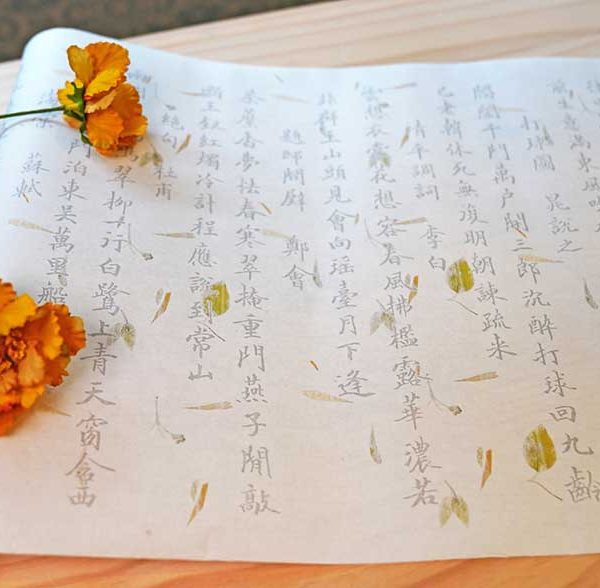 打球圖 晁說之
閶闔千門萬戶開三郎沉醉打球回九齡
已老韓休死無復明朝諫疏來
清平調詞 李白
雲想衣裳花想容春風拂檻露華濃若
非群玉山頭見會向瑤臺月下逢
題邸間壁 鄭會
荼蘼香夢怯春寒翠掩重門燕子閒敲
斷玉釵紅燭冷計程應說到常山
絕句 杜甫
翠柳一行白鷺上青天窗含西
門泊東吳萬里船
蘇軾